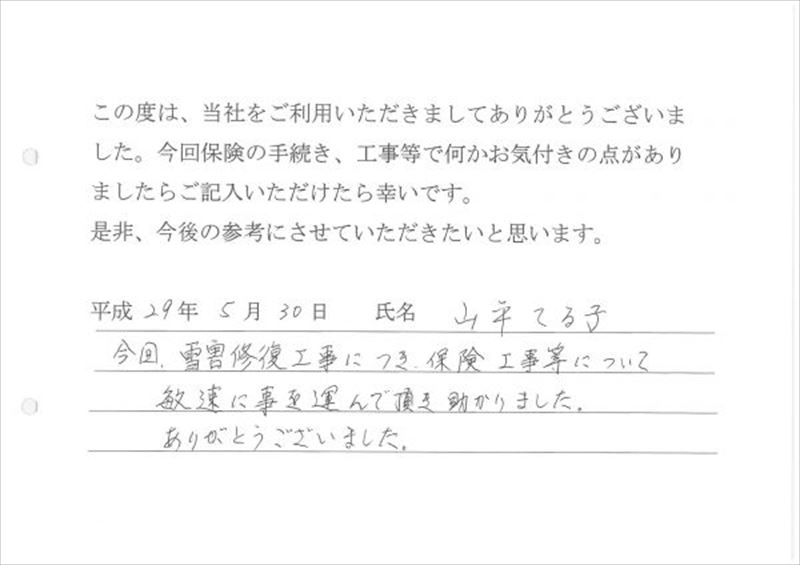 この度は、当社をご利用いただきましてありがとうございま
した。今回保険の手続き、工事等で何かお気付きの点があり
ましたらご記入いただけたら幸いです。
是非、今後の参考にさせていただきたいと思います。
平成 29年 5月 30日 氏名 山平てる子
今回、雪害修復工事につき、保険工事等について
敏速に事を運んで頂き助かりました。
ありがとうございました。